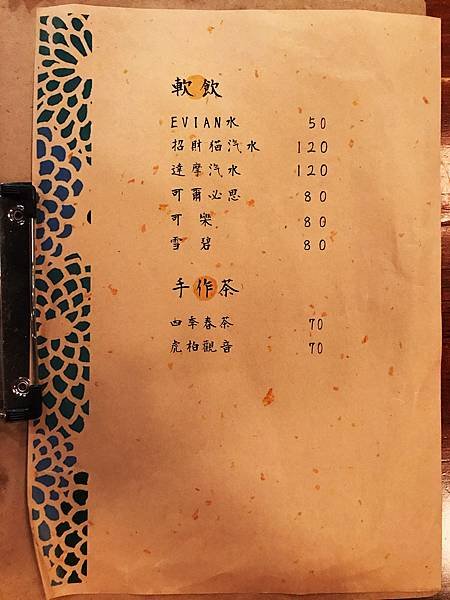 軟飲
EVIAN水 50
招財貓汽水 120
達摩汽水 120
可爾必思 80
可樂 80
雪碧 80
手作茶
四季春茶 70
虎柏觀音 70